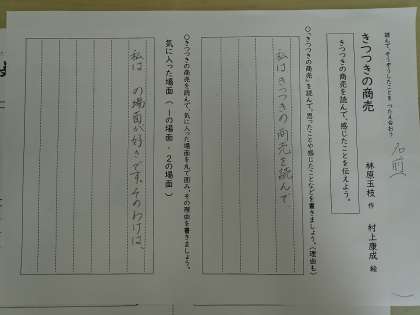 読んで、そうぞうしたことを つたえ合おう
名前(
)
きつつきの商売
林原玉枝 作 村上康成 絵
きつつきの商売を読んで、感じたことを伝えよう。
○「きつつきの商売」を読んで、思ったことや感じたことなどを書きましょう。(理由も)
私はきつつきの商売を読んで
○きつつきの商売を読んで、気に入った場面を丸で囲み、その理由を書きましょう。
気に入った場面(1の場面・2の場面)
私は の場面が好きです。そのわけは、